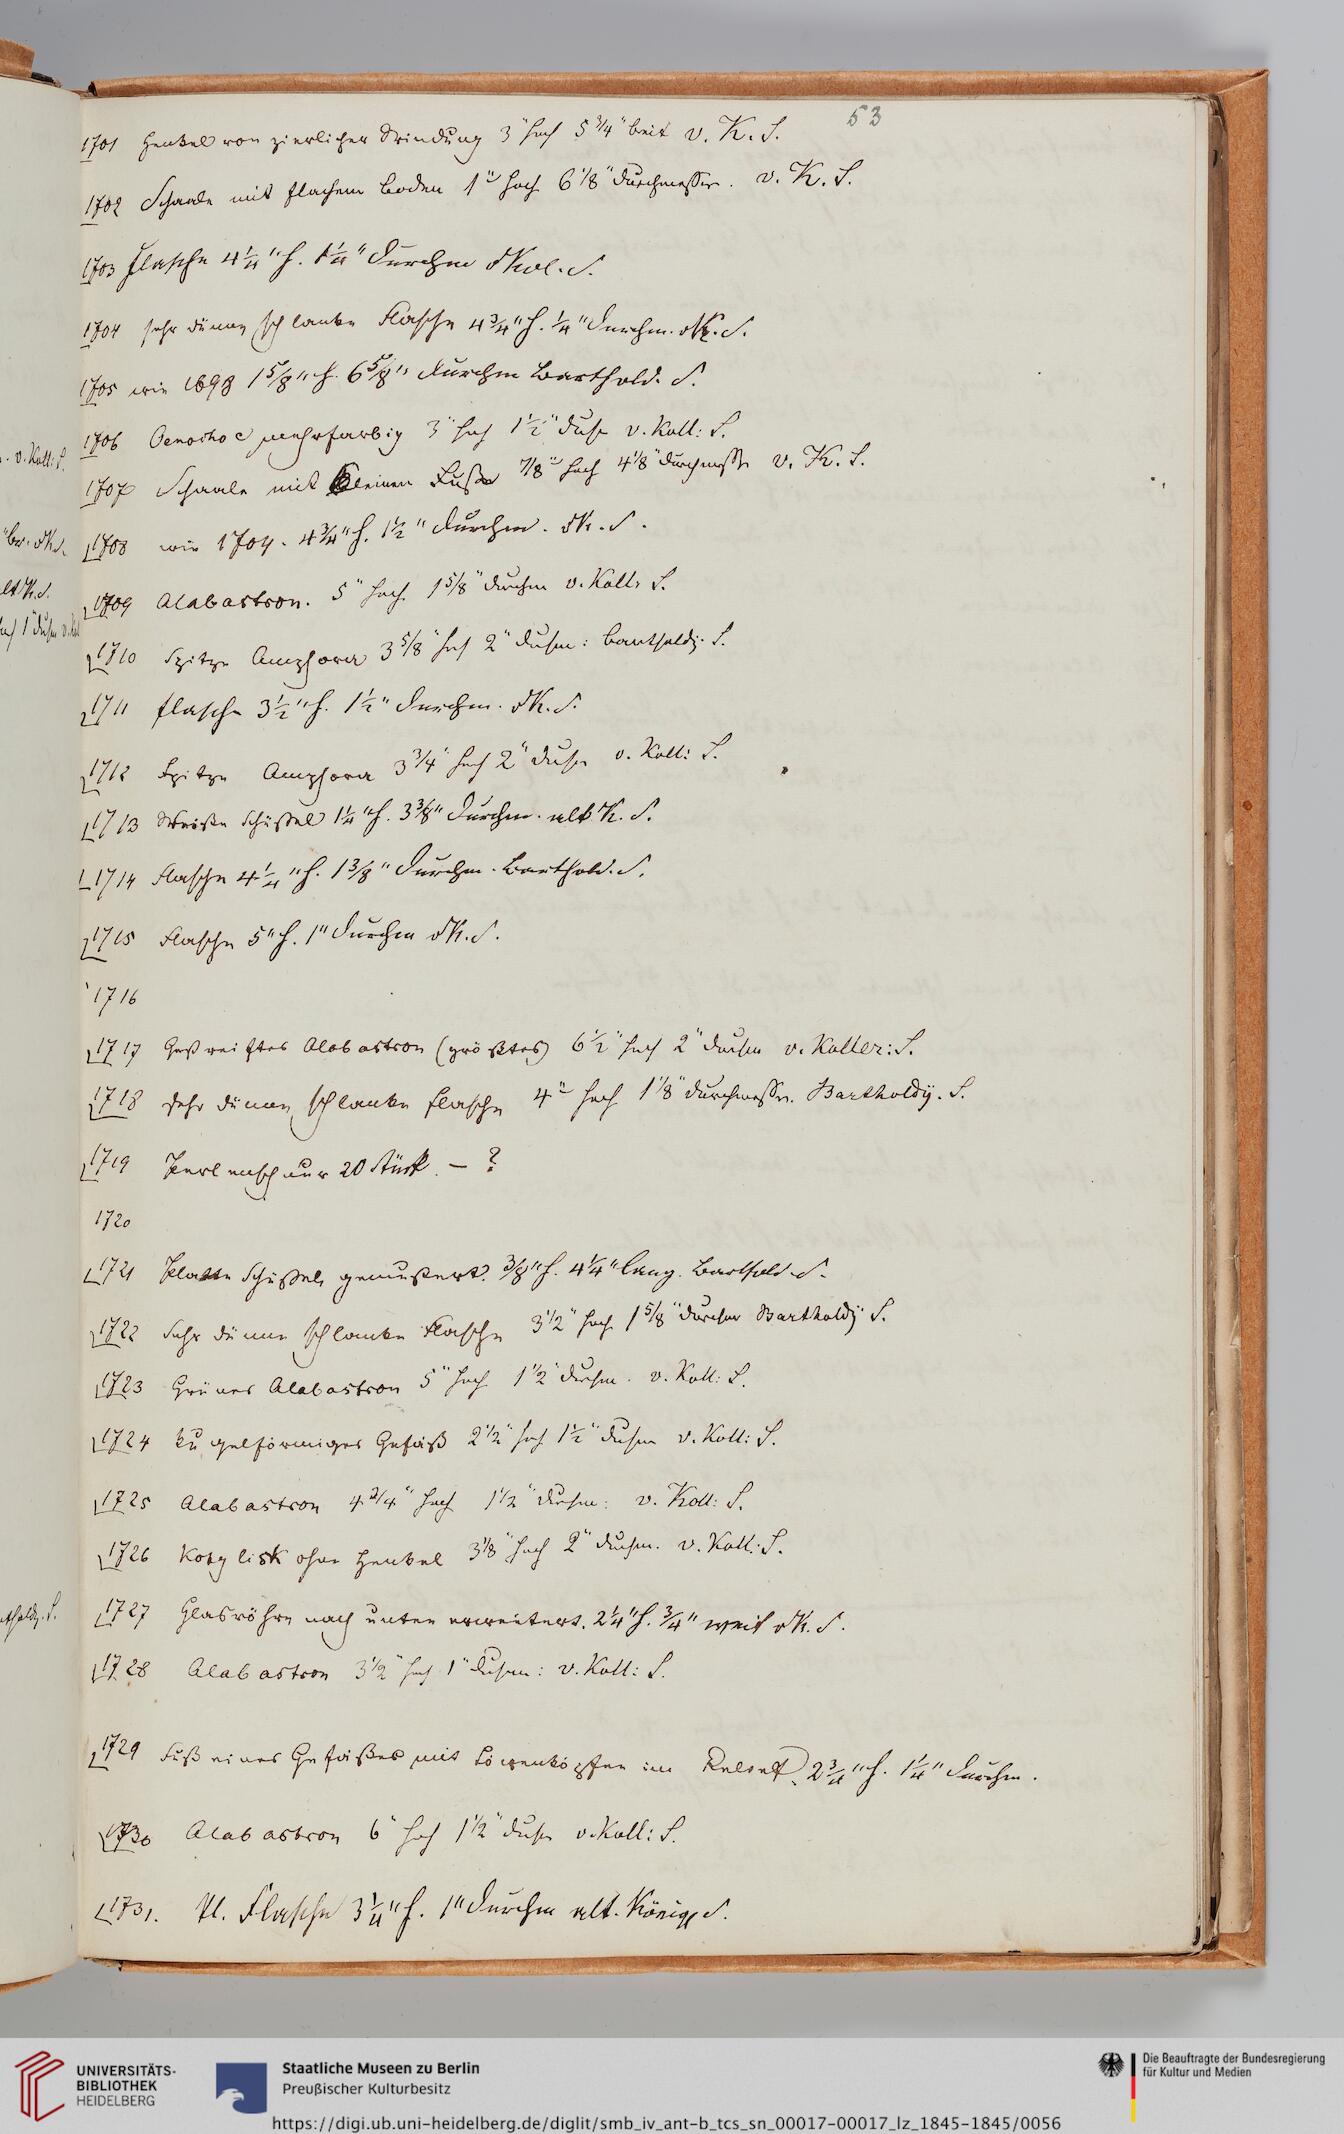 53
1701 Henkel von zierlicher Windung 3" hoch 5 3/4" breit v. K. S.
1702 Schaale mit flachem Boden 1" hoch 6 1/8" Durchmesser. v. K. S.
1703 Flasche 4 1/4" h. 1 1/4" Durchm v Kol. S.
1704 sehr dünne schlanke Flasche 4 3/4" h. 1/4" Durchm. v K. S.
1705 wie 1698 1 5/8" h. 6 5/8" Durchm Barthold. S.
1706 Oenochoe mehrfarbig 3" hoch 1 1/2" Duchm v. Koll: S.
1707 Schaale mit kleinem Fuße 7/8" hoch 4 1/8" Durchmesser v. K. S.
1708 wie 1704. 4 3/4" h. 1 1/2" Durchm. v K. S.
1709 Alabastron. 5" hoch 1 5/8" Durchm v. Koll: S.
1710 Spitze Amphora 3 5/8" hoch 2" Duchm: Bartholdy. S.
1711 Flasche 3 1/2" h. 1 1/2" Durchm. v K. S.
1712 Spitze Amphora 3 3/4" hoch 2" Duchm v. Koll: S.
1713 Weiße Schüssel 1 1/4" h. 3 3/8" Durchm. alt K. S.
1714 Flasche 4 1/4" h. 1 3/8" Durchm. Barthold. S.
1715 Flasche 5" h. 1" Durchm v K. S.
1716
1717 Gestreiftes Alabastron (größtes) 6 1/2" hoch 2" Duchm v. Koller: S.
1718 Sehr dünne schlanke Flasche 4" hoch 1 1/8" Durchmesser. Bartholdy. S.
1719 Perlenschnur 20 Stück. — ?
1720
1721 Platte Schüssel gemustert. 3/8" h. 4 1/4" lang. Barthold. S.
1722 Sehr dünne schlanke Flasche 3 1/2" hoch 1 5/8" Durchm Bartholdy S.
1723 Grünes Alabastron 5" hoch 1 1/2" Durchm. v. Koll: S.
1724 kugelförmiges Gefäß 2 1/2" hoch 1 1/2" Duchm v. Koll: S.
1725 Alabastron 4 3/4" hoch 1 1/2" Durchm: v. Koll: S.
1726 Kotylisk ohne Henkel 3 1/8" hoch 2" Duchm. v. Koll: S.
1727 Glasröhre nach unten erweitert. 2 1/4" h. 3/4" weit v K. S.
1728 Alabastron 3 1/2" hoch 1" Duchm: v. Koll: S.
1729 Fuß eines Gefäßes mit Löwenköpfen im Relief. 2 3/4" h. 1 1/4" Durchm.
1730 Alabastron 6" hoch 1 1/2" Duchm v. Koll: S.
1731. Kl. Flasche 3 1/4" h. 1" Durchm alt. Königl S.
UNIVERSITÄTS-
BIBLIOTHEK
HEIDELBERG
Staatliche Museen zu Berlin
Preußischer Kulturbesitz
Die Beauftragte der Bundesregierung
für Kultur und Medien
https://digi.ub.uni-heidelberg.de/diglit/smb_iv_ant-b_tcs_sn_00017-00017_lz_1845-1845/0056